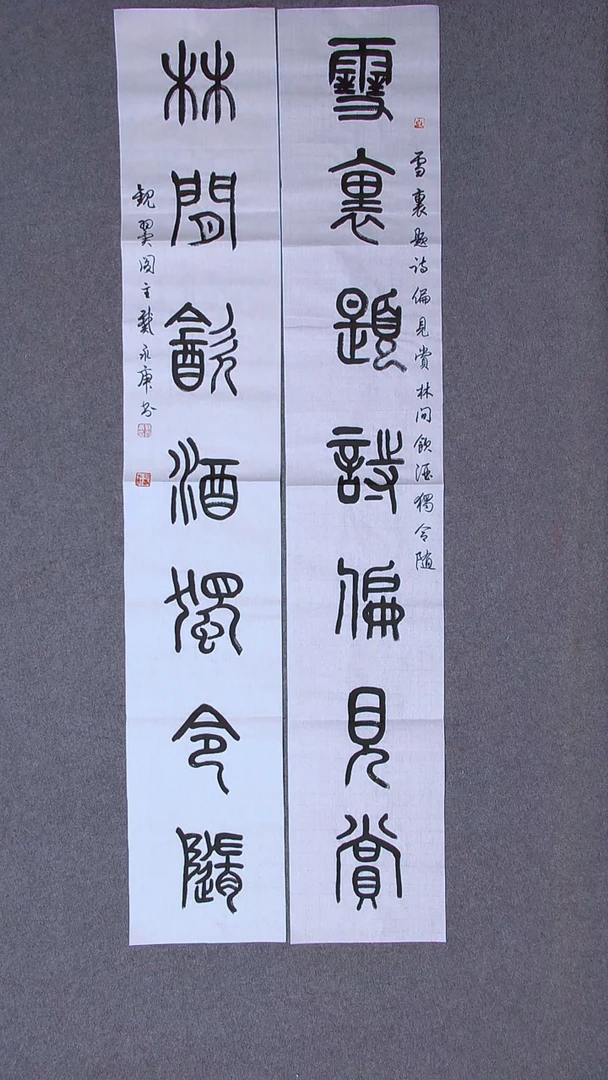 雪裏題詩偏見賞
雪裏題詩偏見賞林间飲酒獨令隨
林間飲酒獨令隨
觀翼阁主龔永康书